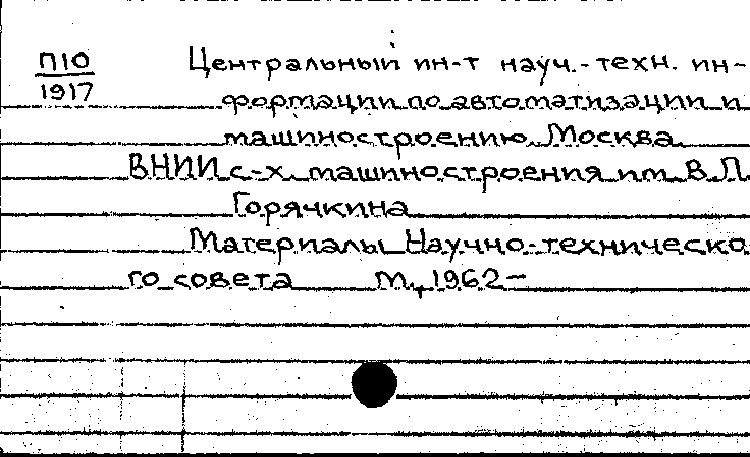 П10 Центральный ин-т науч.-техн. ин-
1917 формации по автоматизации и
машиностроению. Москва.
ВНИИ с.-х. машиностроения им. В.П.
Горячкина
Материалы Научно-техническо-
го совета М., 1962-